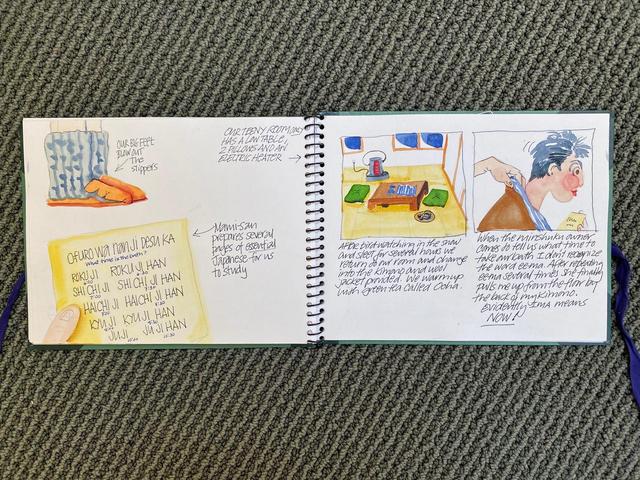 OUR BIG FEET
BLOW OUT
The
slippers
OFURO wa nan ji DESU KA
What time is the bath?
ROKU JI ROKU JI HAN
SHICHI JI SHICHI JI HAN
HACHI JI HACHI JI HAN
KYU JI KYU JI HAN
JU JI JU JI HAN
Mami-san
prepares several
pages of essential
Japanese for us
to study
OUR TEENY ROOM
HAS A LOW TABLE,
2 PILLOWS AND AN
ELECTRIC HEATER
After birdwatching in the snow
and sleet for several hours we
return to our room and change
into the kimono and wool
jacket provided. We warm up
with green tea called Ocha.
When the minshuku owner
comes to tell us what time to
take our bath I don't recognize
the word eema. After repeating
eema several times she finally
pulls me up from the floor by
the back of my kimono.
Evidently Ima means
NOW!